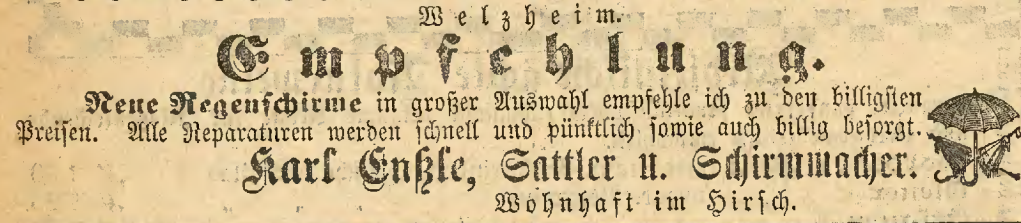 Welzheim.
Empfehlung.
Neue Regenschirme in großer Auswahl empfehle ich zu den billigsten
Preisen. Alle Reparaturen werden schnell und pünktlich sowie auch billig besorgt.
Karl Enßle, Sattler u. Schirmmacher.
Wohnhaft im Hirsch.